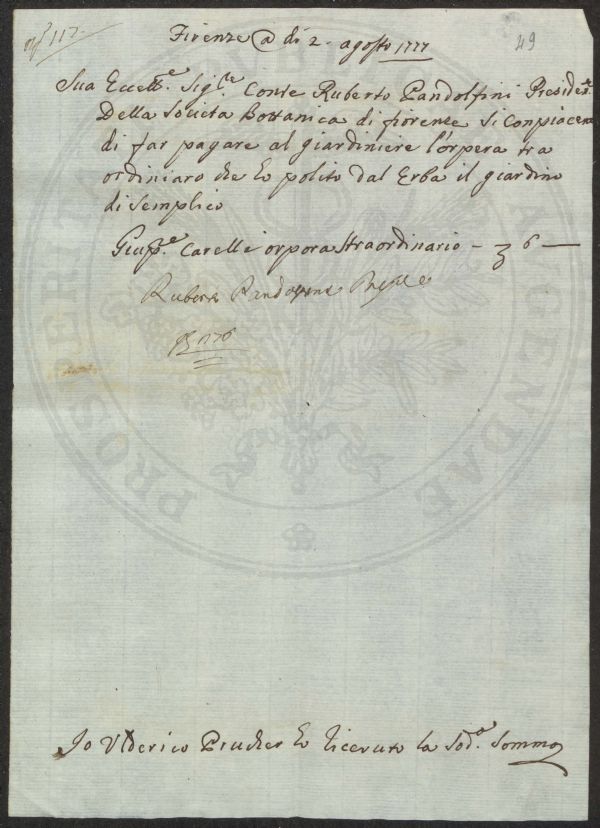 nº 117.
Firenze @ di 2. agosto 1777
49
Sua Eccell.ª Sig.re Conte Ruberto Pandolfini Preside.te
Della Societa Bottanica di fiorenze Si Conpiacera
di far pagare al giardiniere l'orpera tra
ordiniaro che ho polito dal Erba il giardino
di Semplico
Giusp.e Carelli orpora straordinario — 3 6 —
Ruberto Pandolfini Presid.e
1776
Io Ulderico Prucher ho riceuto la Sod.a Somma
PROSPERITA
AGENDAE